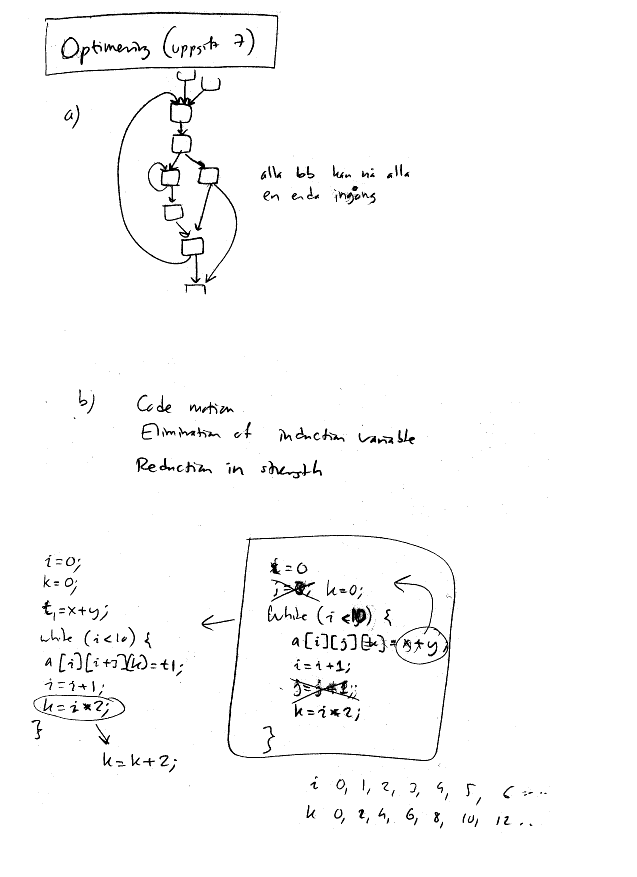 Optimering (uppgift 7)
a)
alla bb kan nå alla
en enda ingång
b) Code motion
Elimination of induction variable
Reduction in strength
i=0;
k=0;
t1=x+y;
while (i<10) {
a[i][i+3][k]=t1;
i=i+1;
k=i*2;
}
k=k+2;
i=0
k=0;
while (i<10) {
a[i][j][k]=x+y;
i=i+1;
k=i*2;
}
i 0, 1, 2, 3, 4, 5, 6 ....
k 0, 2, 4, 6, 8, 10, 12 ..